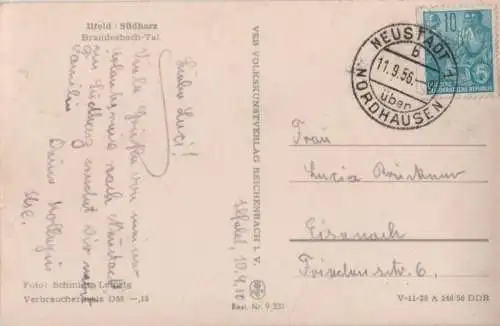 Ilfeld / Südharz
Brandesbach-Tal
Liebe Luci!
Viele Grüße von meiner
Urlaubsreise nach Neustadt
im Südharz sendet Dir nebst
Familie
Deine Kollegin
Ilse.
Foto: Schmidt, Leipzig
Verbraucherpreis DM —,15
VEB VOLKSKUNSTVERLAG REICHENBACH I. V.
Best. Nr. 9
10.9.
NEUSTADT
b
11.9.56
über
NORDHAUSEN
10
DEUTSCHE DEMOKRATISCHE REPUBLIK
Frau
Lucia Brückner
Eisenach
Friedensstr. 6.
V-11-28 A 56 DDR